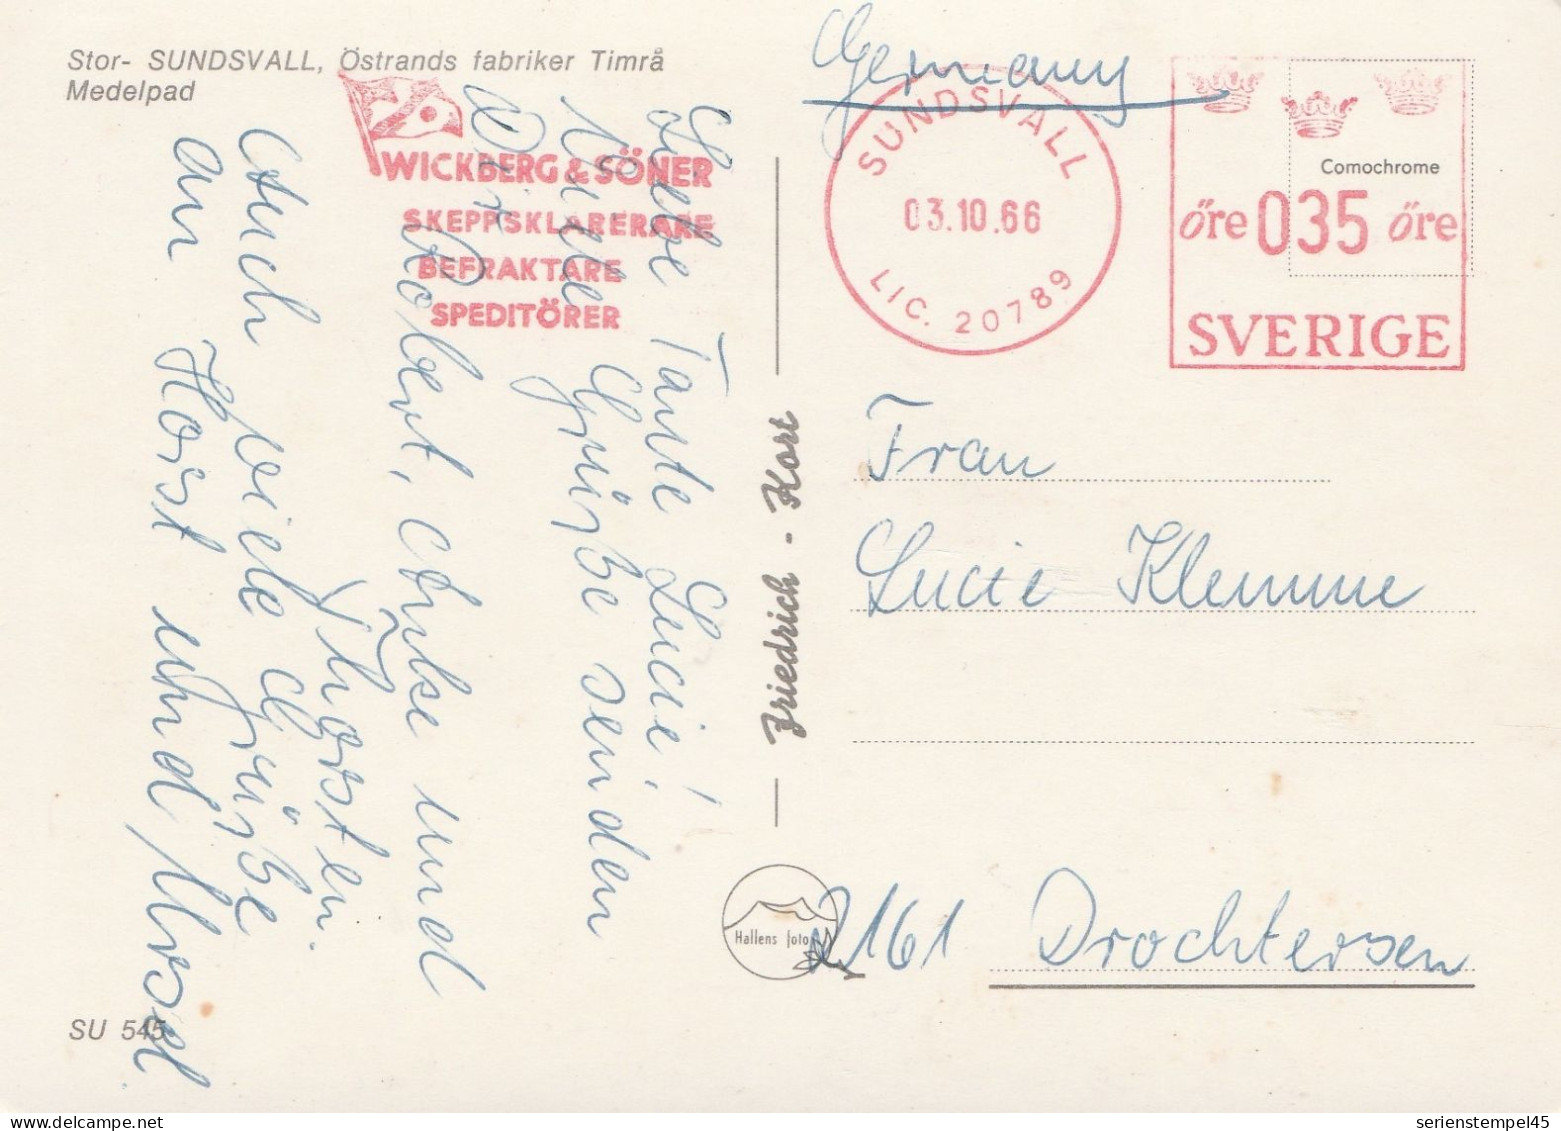 Stor- SUNDSVALL, Östrands fabriker Timrå
Medelpad
WICKBERG & SÖNER
SKEPPSKLARERARE
BEFRAKTARE
SPEDITÖRER
Germany
SUNDSVALL
03.10.66
LIC. 20789
Comochrome
öre 035 öre
SVERIGE
Liebe Tante Lucie!
Grüße senden
Dir Robert, Antke und
Thorsten.
Auch viele Grüße
an Horst und
Friedrich - Kort
Frau
Lucie Klemme
2161 Drochtersen
Hallens foto
SU 545
serienstempel45